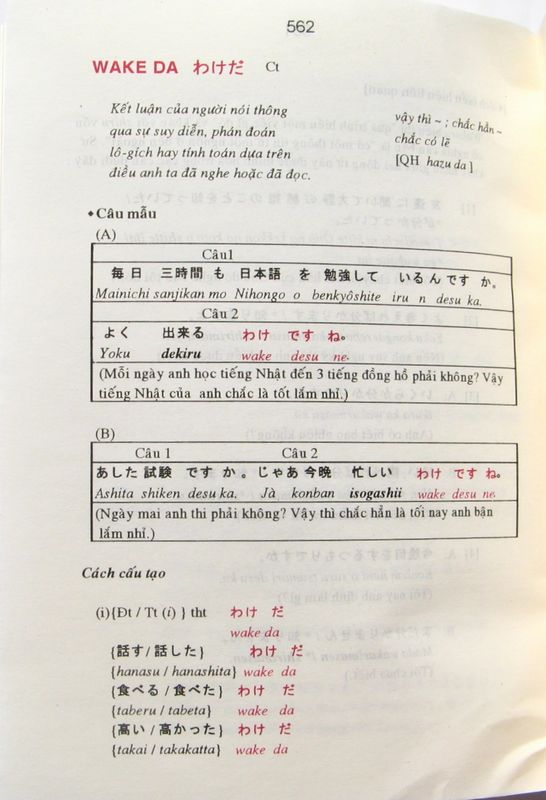 562
WAKE DA わけだ Ct
Kết luận của người nói thông
qua sự suy diễn, phán đoán
lô-gích hay tính toán dựa trên
điều anh ta đã nghe hoặc đã đọc.
vậy thì ~ ; chắc hẳn ~
chắc có lẽ
[QH hazu da]
◆Câu mẫu
(A)
Câu1
毎日 三時間 も 日本語 を 勉強して いるんです か。
Mainichi sanjikan mo Nihongo o benkyôshite iru n desu ka.
Câu 2
よく 出来る わけ ですね。
Yoku dekiru wake desu ne.
(Mỗi ngày anh học tiếng Nhật đến 3 tiếng đồng hồ phải không? Vậy
tiếng Nhật của anh chắc là tốt lắm nhỉ.)
(B)
Câu 1 Câu 2
あした 試験 です か。じゃあ 今晩 忙しい わけ ですね。
Ashita shiken desu ka. Jà konban isogashii wake desu ne.
(Ngày mai anh thi phải không? Vậy thì chắc hẳn là tối nay anh bận
lắm nhỉ.)
Cách cấu tạo
(i){Đt / Tt (i) } tht わけ だ
wake da
{話す / 話した} わけ だ
{hanasu / hanashita} wake da
{食べる / 食べた} わけ だ
{taberu / tabeta} wake da
{高い / 高かった} わけ だ
{takai / takakatta} wake da